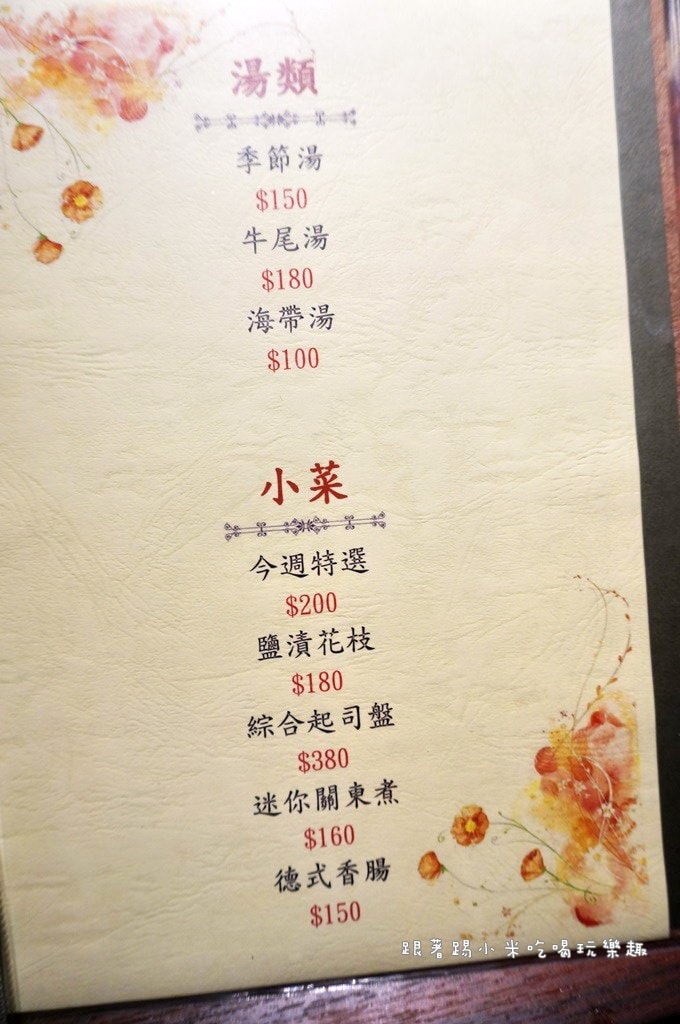 湯類
季節湯
$150
牛尾湯
$180
海帶湯
$100
小菜
今週特選
$200
鹽漬花枝
$180
綜合起司盤
$380
迷你關東煮
$160
德式香腸
$150
跟著踢小米吃喝玩樂趣